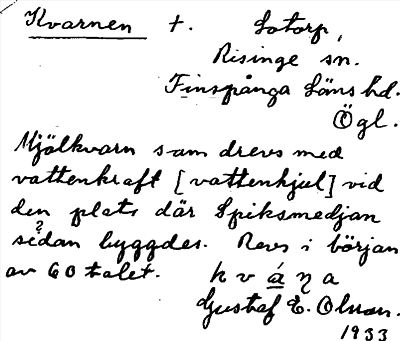 Kvarnen t. Sotorp,
Risinge sn.
Finspånga Läns hd.
Ögl.
Mjölkvarn som drevs med
vattenkraft [vattenhjul] vid
den plats där Spiksmedjan
sedan byggdes. Revs i början
av 60 talet. kváṇa
Gustaf E. Olsson.
1933